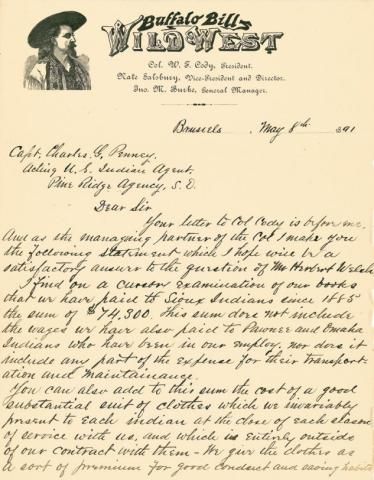 Buffalo Bill's
WILD WEST
Col. W. F. Cody, President.
Nate Salsbury, Vice-President and Director.
Jno. M. Burke, General Manager.
Brussels, May 8th 391
Capt. Charles G. Penney,
Acting U. S. Indian Agent.
Pine Ridge Agency, S. D.
Dear Sir
Your letter to Col Cody is before me.
And as the managing partner of the Col I make you
the following statement which I hope will be a
satisfactory answer to the question of Mr Herbert Welsh
I find on a cursory examination of our books
that we have paid to Sioux Indians since 1885
the sum of $74,300. This sum does not include
the wages we have also paid to Pawnee and Omaha
Indians who have been in our employ, nor does it
include any part of the expense for their transport-
ation and maintainance.
You can also add to this sum the cost of a good
substantial suit of clothes which we invariably
present to each indian at the close of each season
of service with us, and which is entirely outside
of our contract with them - We give the clothes as
a sort of premium for good conduct and saving habits